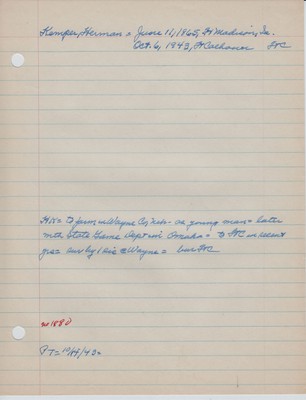 Kemper, Herman = June 11, 1865, Ft Madison, Ia.
Oct. 6, 1943, Ft Calhoun FtC
HN = To farm in Wayne Co, Neb - as young man = later
with State Game Dept in Omaha = to FtC in recent
yrs = surv by 1 sis @ Wayne = bur FtC
n 1880
PT = 10/14/43 =